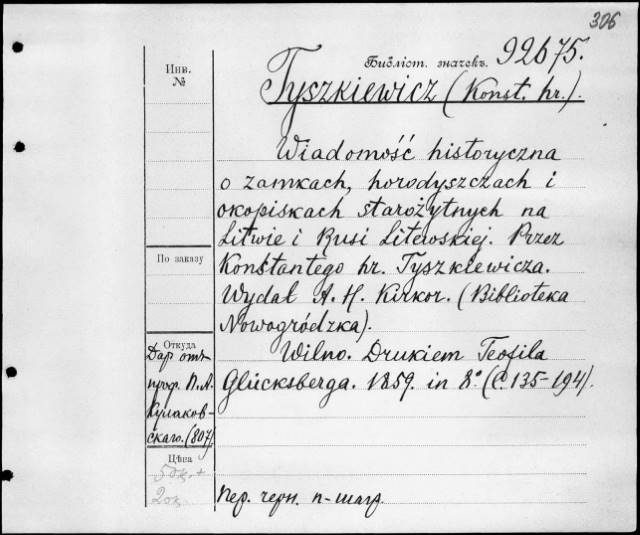 306
Библіот. значекъ. 92675.
Инв.
№
Tyszkiewicz (Konst. hr.).
Wiadomość historyczna
o zamkach, horodyszczach i
okopiskach starożytnych na
Litwie i Rusi Litewskiej. Przez
Konstantego hr. Tyszkiewicza.
Wydał A. H. Kirkor. (Biblioteka
Nowogródzka).
Wilno. Drukiem Teofila
Glücksberga. 1859. in 8° (С. 135-194).
По заказу
Откуда
Даръ отъ
проф. П. А.
Кулаков-
скаго. (807)
Цѣна
Пер. черн. п-марр.